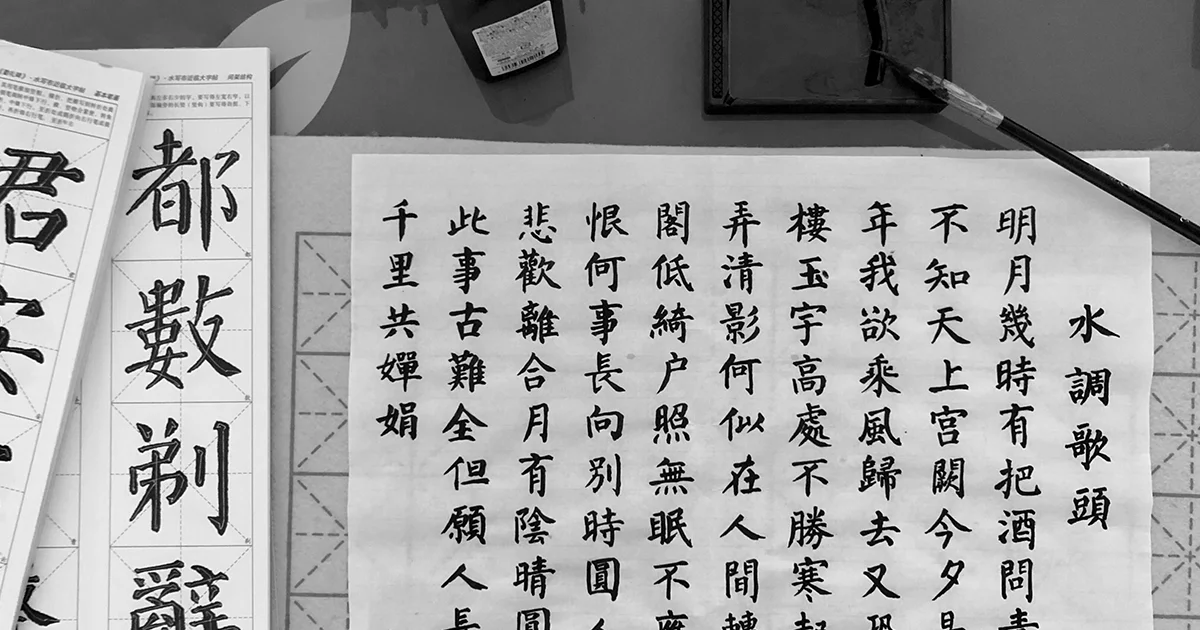 水調歌頭
明月幾時有把酒問青
不知天上宮闕今夕是
年我欲乘風歸去又恐
樓玉宇高處不勝寒起
弄清影何似在人間轉
閣低綺户照無眠不應
恨何事長向別時圓人
悲歡離合月有陰晴圓
此事古難全但願人長
千里共嬋娟
都數剃辭
君